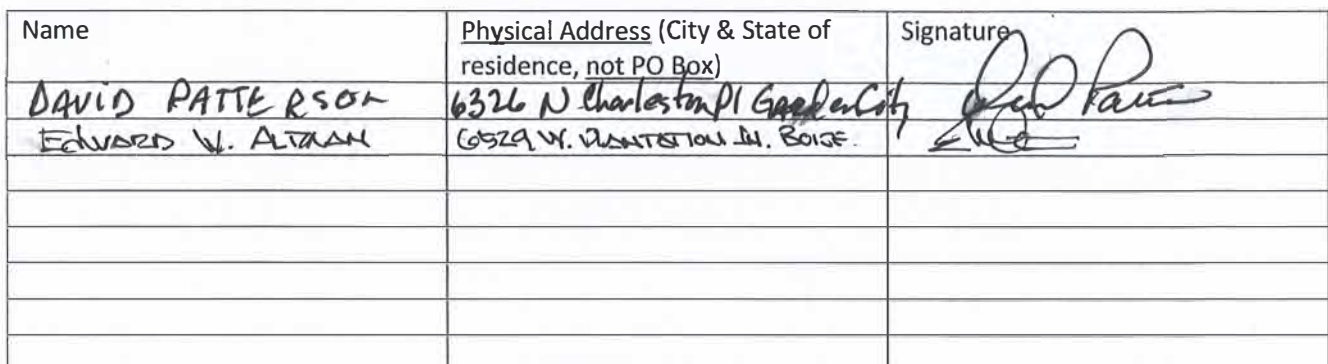 Name Physical Address (City & State of Signature
residence, not PO Box)
DAVID PATTERSON 6326 N Charleston Pl Garden City
EDWARD W. ALTMAN 6529 W. PLANTATION LN. BOISE.